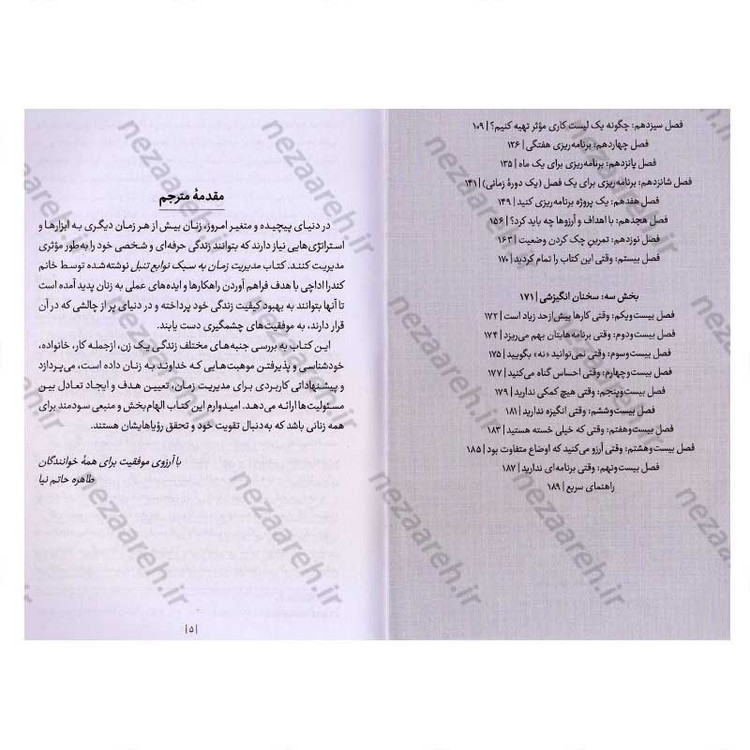 فصل سیزدهم: چگونه یک لیست کاری مؤثر تهیه کنیم؟ | ۱۰۹
فصل چهاردهم: برنامه‌ریزی هفتگی | ۱۲۶
فصل پانزدهم: برنامه‌ریزی برای یک ماه | ۱۳۵
فصل شانزدهم: برنامه‌ریزی برای یک فصل (یک دورهٔ زمانی) | ۱۴۱
فصل هفدهم: یک پروژه برنامه‌ریزی کنید | ۱۴۹
فصل هجدهم: با اهداف و آرزوها چه باید کرد؟ | ۱۵۶
فصل نوزدهم: تمرین چک کردن وضعیت | ۱۶۳
فصل بیستم: وقتی این کتاب را تمام کردید | ۱۷۰
بخش سه: سخنان انگیزشی | ۱۷۱
فصل بیست‌ویکم: وقتی کارها بیش‌ازحد زیاد است | ۱۷۲
فصل بیست‌ودوم: وقتی برنامه‌هایتان بهم می‌ریزد | ۱۷۴
فصل بیست‌وسوم: وقتی نمی‌توانید «نه» بگویید | ۱۷۵
فصل بیست‌وچهارم: وقتی احساس گناه می‌کنید | ۱۷۷
فصل بیست‌وپنجم: وقتی هیچ کمکی ندارید | ۱۷۹
فصل بیست‌وششم: وقتی انگیزه ندارید | ۱۸۱
فصل بیست‌وهفتم: وقتی که خیلی خسته هستید | ۱۸۳
فصل بیست‌وهشتم: وقتی آرزو می‌کنید که اوضاع متفاوت بود | ۱۸۵
فصل بیست‌ونهم: وقتی برنامه‌ای ندارید | ۱۸۷
راهنمای سریع | ۱۸۹
مقدمهٔ مترجم
در دنیای پیچیده و متغیر امروز، زنان بیش از هر زمان دیگری به ابزارها و
استراتژی‌هایی نیاز دارند که بتوانند زندگی حرفه‌ای و شخصی خود را به‌طور مؤثری
مدیریت کنند. کتاب مدیریت زمان به سبک نوابع تنبل نوشته‌شده توسط خانم
کندرا اداچی با هدف فراهم آوردن راهکارها و ایده‌های عملی به زنان پدید آمده است
تا آنها بتوانند به بهبود کیفیت زندگی خود پرداخته و در دنیای پر از چالشی که در آن
قرار دارند، به موفقیت‌های چشمگیری دست یابند.
این کتاب به بررسی جنبه‌های مختلف زندگی یک زن، ازجمله کار، خانواده،
خودشناسی و پذیرفتن موهبت‌هایی که خداوند به زنان داده است، می‌پردازد
و پیشنهاداتی کاربردی برای مدیریت زمان، تعیین هدف و ایجاد تعادل بین
مسئولیت‌ها ارائه می‌دهد. امیدوارم این کتاب الهام‌بخش و منبعی سودمند برای
همه زنانی باشد که به‌دنبال تقویت خود و تحقق رؤیاهایشان هستند.
با آرزوی موفقیت برای همهٔ خوانندگان
طاهره حاتم نیا
| ۵ |
nezaareh.ir
nezaareh.ir
nezaareh.ir
nezaareh.ir
nezaareh.ir
nezaareh.ir
nezaareh.ir
nezaareh.ir